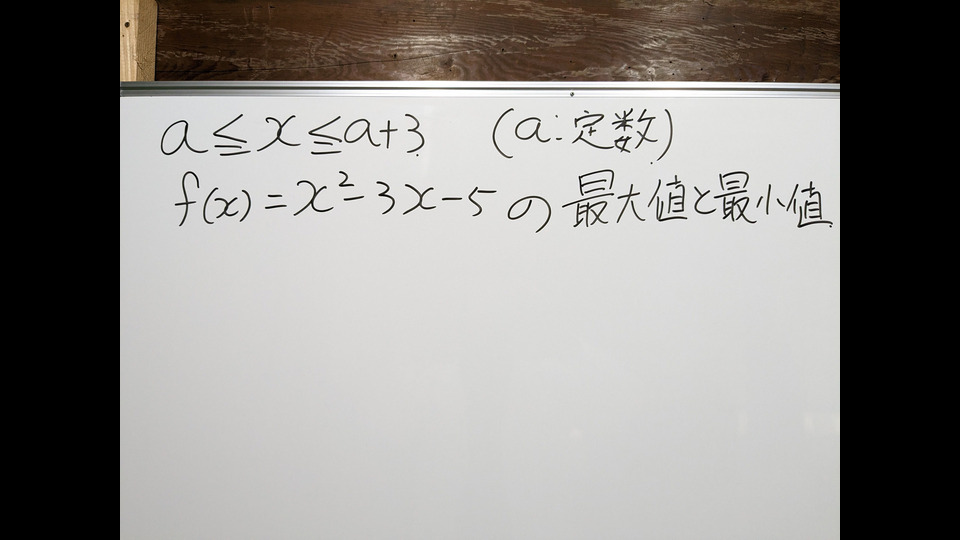 a≦x≦a+3 (a:定数)
f(x)=x²-3x-5の最大値と最小値